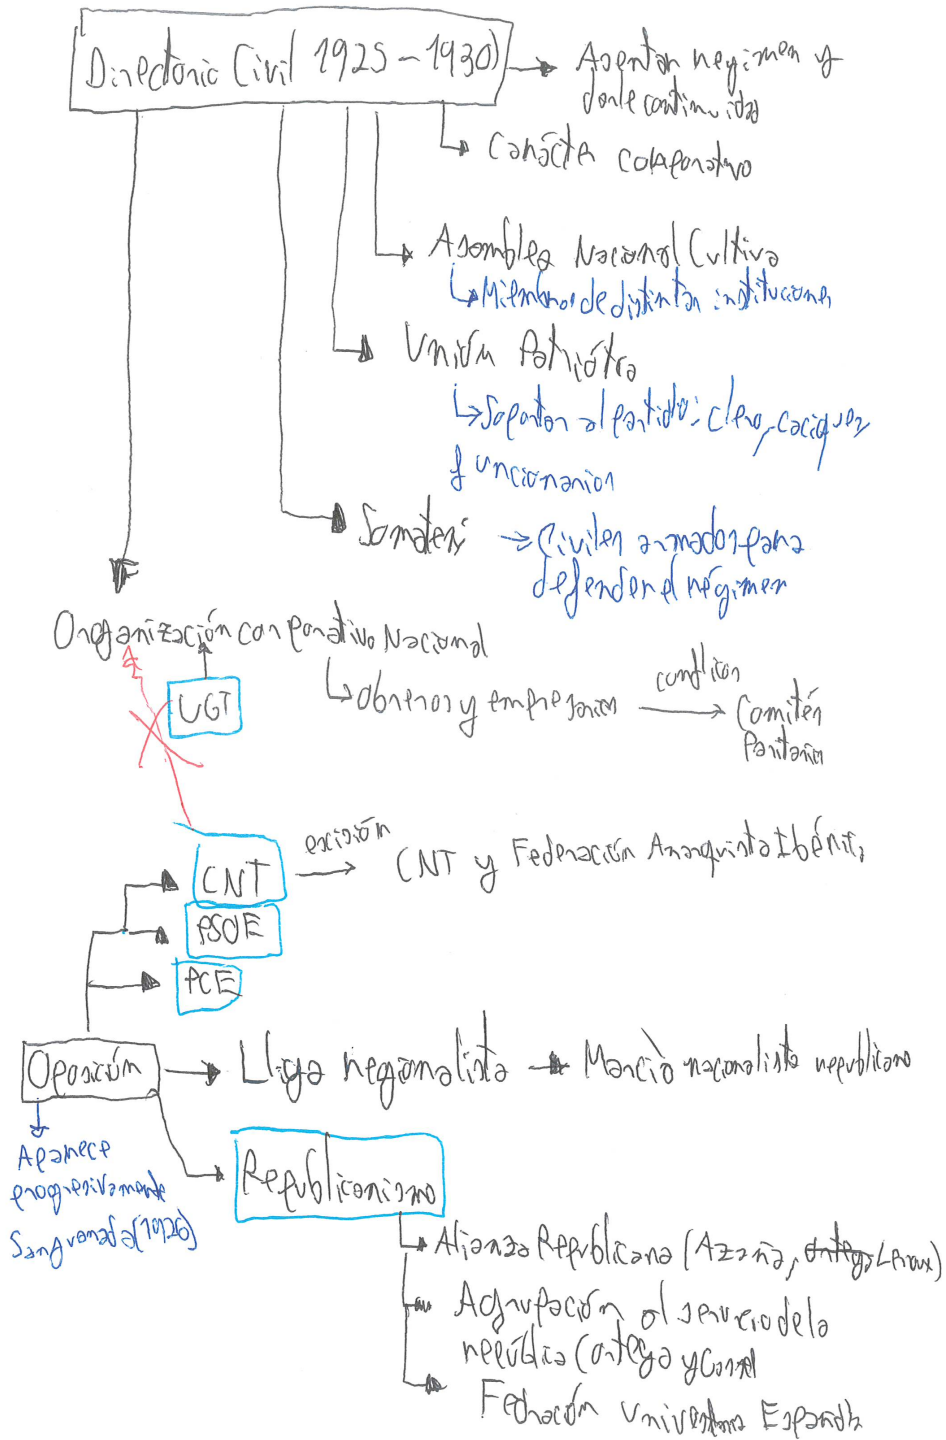 Directorio Civil (1925-1930)
Asentar regimen y
darle continuidad
Carácter corporativo
Asamblea Nacional Cultiva
Miembros de distintas instituciones
Unión Patriótica
Soportan al partido: clero, caciques,
funcionarios
Somatení
Civiles armados para
defender el régimen
Organización corporativo Nacional
UGT
Obreros y empresarios
conflictos
Comités
Paritarios
CNT
escisión
CNT y Federación Anarquista Ibérica
PSOE
PCE
Oposición
Lliga regionalista
nacionalista republicano
Aparece
progresivamente
Sanjuanada (1926)
Republicanismo
Alianza Republicana (Azaña, Ortega Leroux)
Agrupación al servicio de la
república (Ortega y Gasset
Fedración Universitaria Española